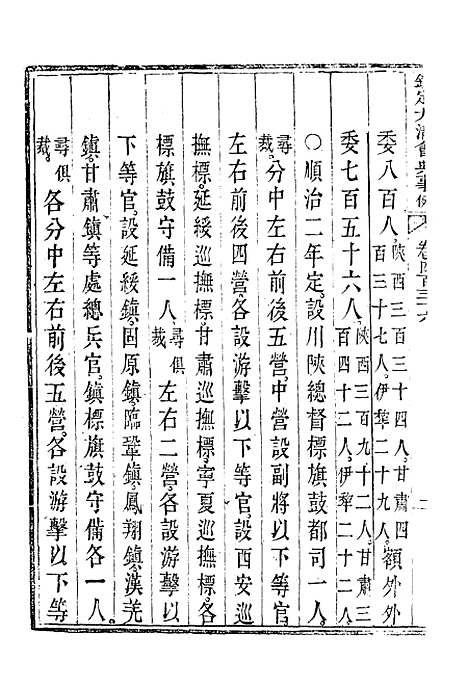 欽定大清會典事例 卷四百三十六 二
委八百人。陝西三百三十四人。甘肅四百三十七人。伊犂二十九人。額外外
委七百五十六人。陝西三百九十二人。甘肅三百四十二人。伊犂二十二人。
○順治二年定。設川陝總督標旗鼓都司一人。
尋裁。分中左右前後五營。中營設副將以下等官。
左右前後四營。各設游擊以下等官。設西安巡
撫標。延綏巡撫標。甘肅巡撫標。寧夏巡撫標。各
標旗鼓守備一人。尋俱裁。左右二營。各設游擊以
下等官。設延綏鎮。固原鎮。臨鞏鎮。鳳翔鎮。漢羌
鎮。甘肅鎮等處總兵官。鎮標旗鼓守備各一人。
尋俱裁。各分中左右前後五營。各設游擊以下等